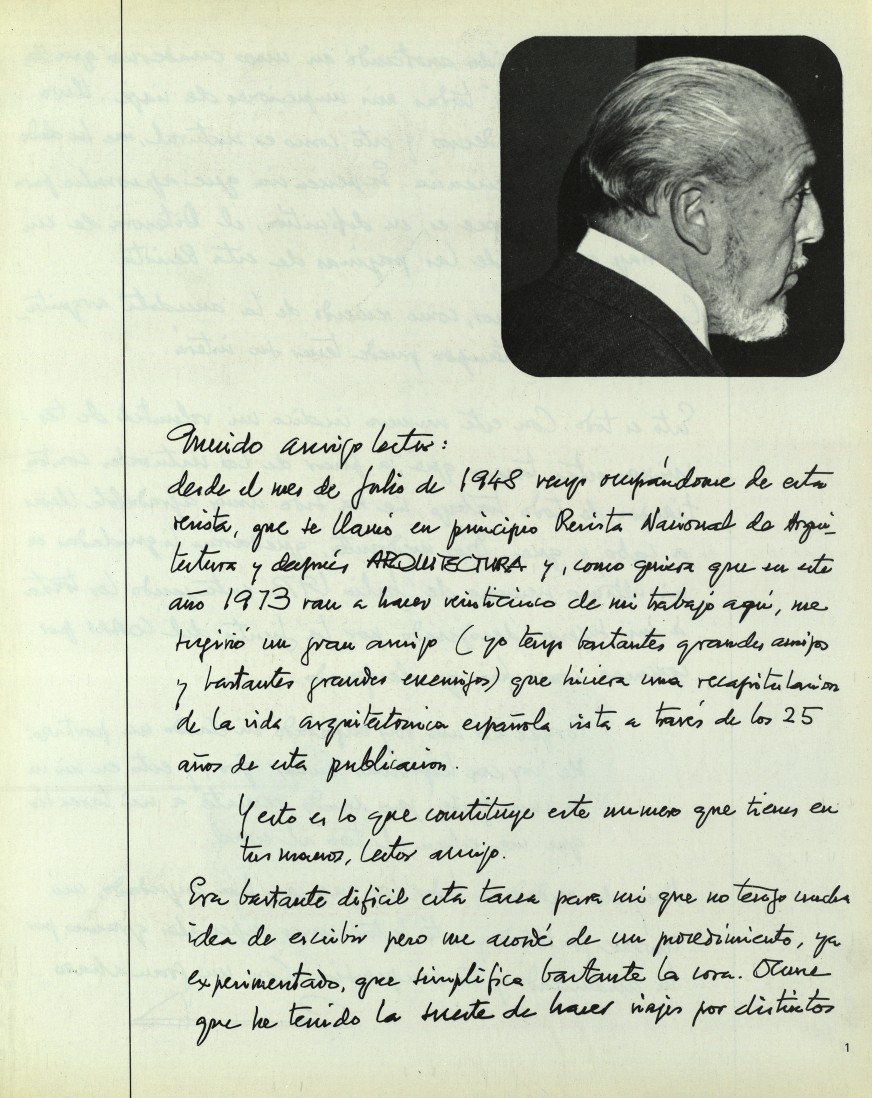 Querido amigo lector:
desde el mes de Julio de 1948 vengo ocupándome de esta
revista, que se llamó en principio Revista Nacional de Arqui-
tectura y después ARQUITECTURA y, como quiera que en este
año 1973 van a hacer veinticinco de mi trabajo aquí, me
sugirió un gran amigo (yo tengo bastantes grandes amigos
y bastantes grandes enemigos) que hiciera una recapitulacion
de la vida arquitectonica española vista a través de los 25
años de esta publicacion.
Y esto es lo que constituye este numero que tienes en
tus manos, lector amigo.
Era bastante dificil esta tarea para mi que no tengo mucha
idea de escribir pero me acordé de un procedimiento, ya
experimentado, que simplifica bastante la cosa. Ocurre
que he tenido la suerte de hacer viajes por distintos
1